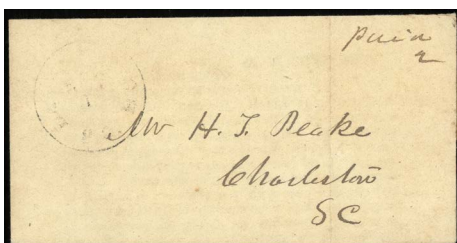 Paid
2
Mr H. T. Peake
Charleston
SC